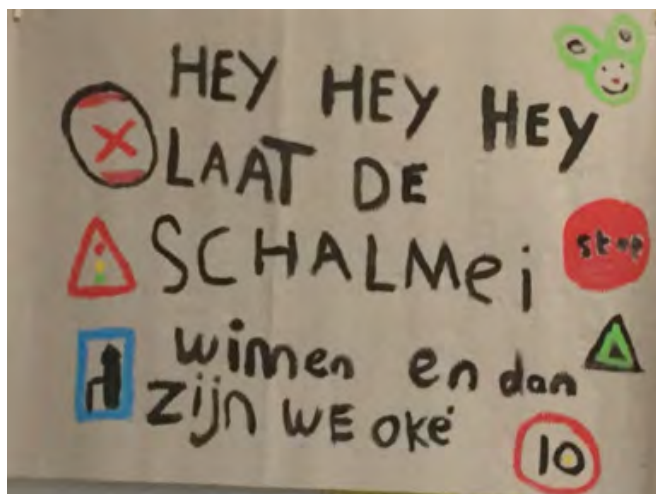 HEY HEY HEY
LAAT DE
SCHALMei
stop
winnen en dan
zijn WE oké
10